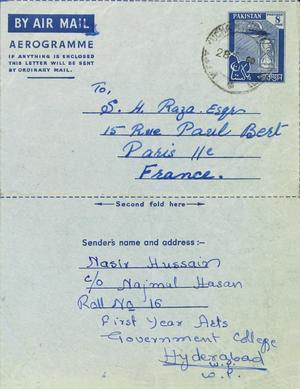 BY AIR MAIL
AEROGRAMME
IF ANYTHING IS ENCLOSED
THIS LETTER WILL BE SENT
BY ORDINARY MAIL.
PAKISTAN
To,
S. H. Raza. Esqr
15 Rue Paul Bert
Paris 11e
France.
Second fold here
Sender's name and address:-
Nasir Hussain
c/o Najmul Hasan
Roll No 16
First Year Arts
Government College
Hyderabad
W.P.